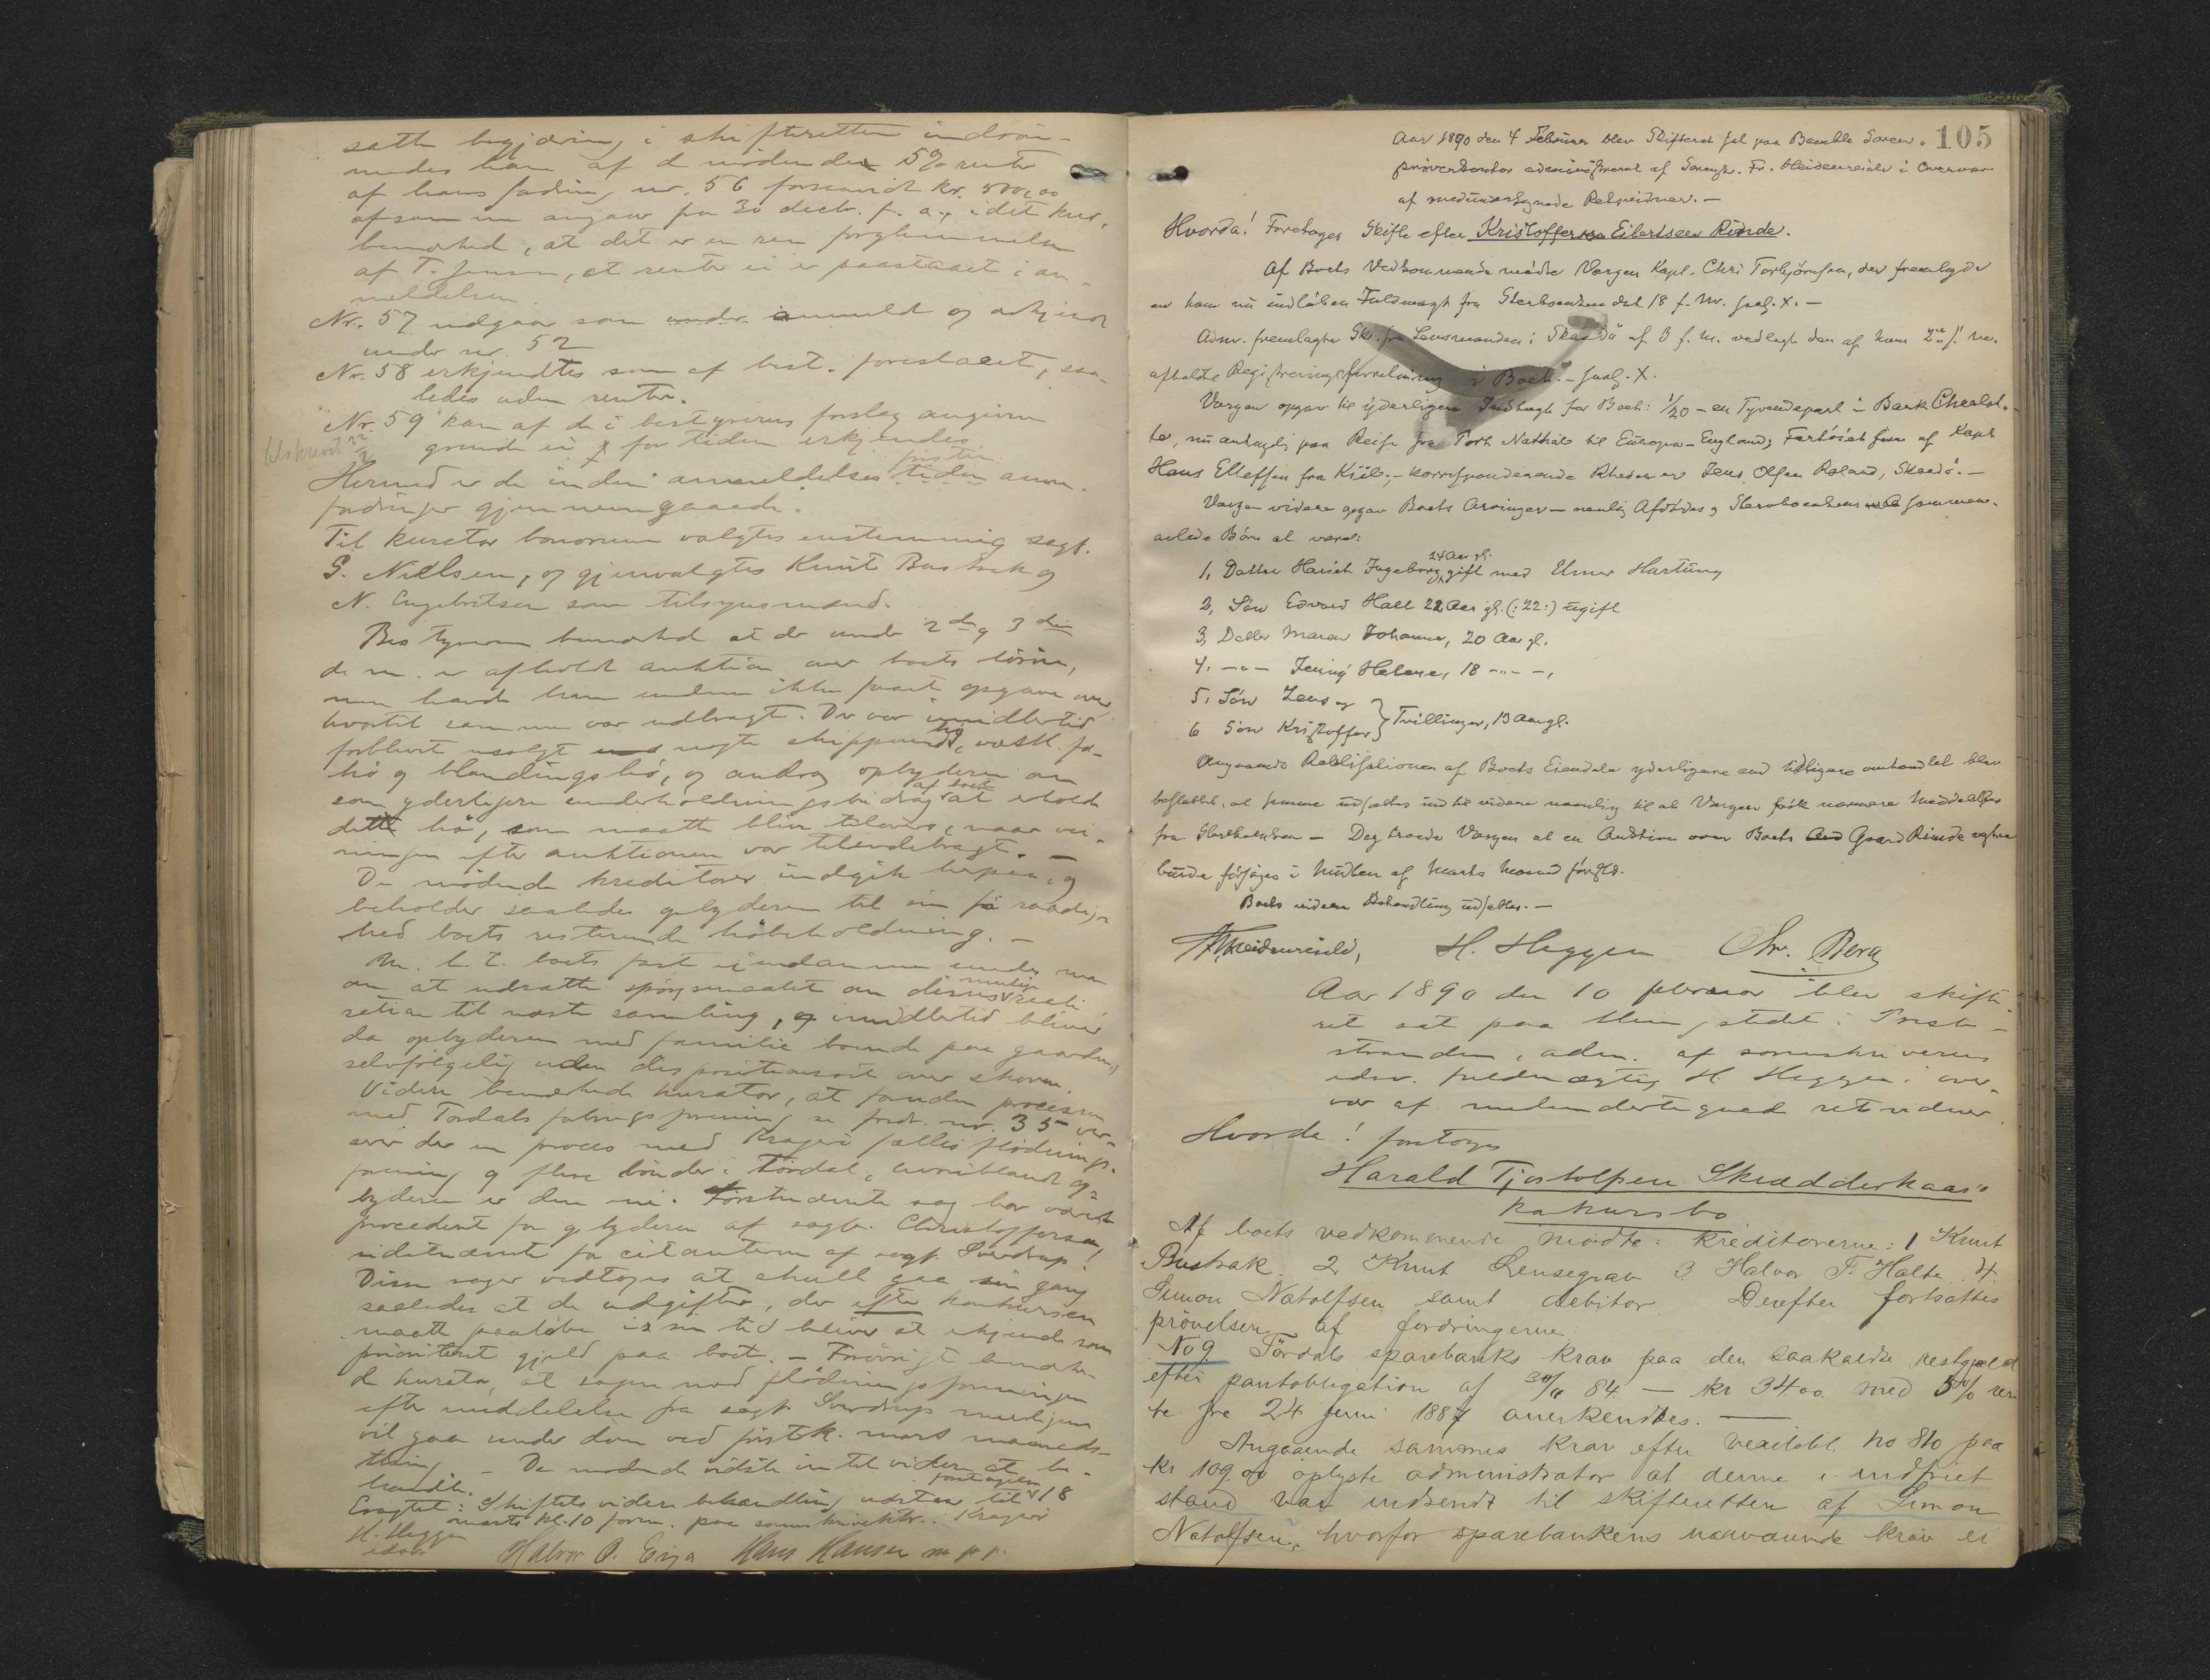 satte begjæring i skifteretten indröm-
medes ham af de mödende 5% rente
af hans fordring nr. 56 forsaavidt kr. 500,00
af samme angaar fra 30 decbr. f. a., idet kur.
bemærked, at det er en ren forglemmelse
af T. Jensen, at rente ei er paastaaet i an-
meldelsen.
Nr. 57 udgaar som under anmeldt og erkjendt
under nr. 52
Nr. 58 erkjendtes som af best. foreslaaet, saa-
ledes uden renter.
Nr. 59 kan af de i bestyrerens forslag angivne
grunde ei for tiden erkjendes.
tilskrevet 22/2
Hermed er de inden anmeldelses tiden anm.
fristen
fordringer gjennemgaaede.
Til kurator bonorum valgtes enstemmig sagf.
G. Nielsen, og gjenvalgtes Knut Bustrak og
N. Engebretsen som tilsynsmænd.
Bestyreren bemærked at der under 2den og 3die
ds. m. er afholdt auktion over boets lösöre,
men havde han endnu ikke faaet opgave over
hvortil samme var udbragt. Der var imidlertid
forblevet usolgt nogle skippund hö,
hö og blandingshö, og androg opbyderen om
som yderligere underholdningsbidrag af boet at erholde
dette hö, som maatte blive tilovers, naar vei-
ningen efter auktionen var tilendebragt. —
De mödende kreditorer indgik herpaa, og
beholder saaledes opbyderen til sin fri raadig-
hed boets resterende höbeholdning. —
M. h. t. boets faste eiendomme enedes man
om at udsætte spörgsmaalet om disses mulige reali-
sation til næste samling, og imidlertid bliver
da opbyderen med familie boende paa gaarden,
selvfölgelig uden dispositionsret over skoven.
Videre bemærkede kurator, at foruden processen
med Tördals forening, se ford. nr. 35 ver-
serer der en proces med Kragerö fælles flödnings-
forening og flere bönder i Tördal, hvoriblandt op-
byderen er den ene. Förstnævnte sag har været
procederet for opbyderen af sagf. Christoffersen,
sidstnævnte for citanterne af sagf. Sverdrup.
Disse sager vedtoges at skulle gaa sin gang
saaledes at de udgifter, der efter konkursen
maatte paalöbe i sin tid bliver at erkjende som
prioriteret gjæld paa boet. — Forövrigt bemærke-
de kurator, at sagen mod flödningsforeningen
efter meddelelse fra sagf. Sverdrup rimeligvis
vil gaa under dom ved förstk. marts maaneds-
thing. — De mödende vidste intet videre at be-
handle.
Eragtet: Skiftets videre behandling udstaar til foretagelse 18
marts kl. 10 form. paa sorenskriverktr. i Kragerö
H. Heggen
edsv.
Halvor O. Eija Hans Hansen m p p.
105
Aar 1890 den 4 Februar blev Skifteret sat paa Bamble Soren-
skriverkontor administreret af Sorenskr. Fr. Heidenreich i Overvær
af medundertegnede Retsvidner. —
Hvorda! Foretages Skifte efter Kristoffer Eilertsen Rinde.
Af Boets Vedkommende mødte Værgen Kapt. Chr. Torbjörnsen, der fremlagde
en ham nu indløben Fuldmagt fra Sterboenken dat 18 f. M. saal. X. —
Adm. fremlagte Skr. fra Lensmanden i Skaadø af 3 f. M. vedlagt den af ham 2 s. M.
afholdte Registreringsforretning i Boet. — saal. X.
Værgen opgav til yderligere Indtægt for Boet: 1/20 — en Tyvendepart i Bark Charlot-
te, nu antagelig paa Reise fra Port Natal til Europa — England; Fartøiet føres af Kapt
Hans Ellefsen fra Kiil; — korresponderende Rheder er Jens Olsen Roland, Skaadø. —
Værgen videre opgav Boets Arvinger — nemlig Afdødes og Sterboenkens sammen-
avlede Børn at være:
1, Datter Hariet Ingeborg 24 Aar gl. gift med Elmer Hartung
2, Søn Edvard Hall 22 Aar gl. (: 22 :) ugift
3, Datter Maren Johanne, 20 Aar gl.
4, — " — Jenny Helene, 18 — " — ,
5, Søn Jens og
6 Søn Kristoffer } Tvillinger, 13 Aar gl.
Angaaende Realisationen af Boets Eiendele yderligere end tidligere omhandlet blev
besluttet, at samme udsættes indtil videre nemlig til at Værgen fik nærmere Meddelelse
fra Sterboenken — Dog troede Værgen at en Auktion over Boets Gaard Rinde
burde søges i Midten af Marts Maaned førstk.
Boets videre Behandling udsattes. —
Fr. Heidenreich, H. Heggen Chr. Berg
Aar 1890 den 10 februar blev skifte-
ret sat paa thingstedet i Prest-
stranden, adm. af sorenskriverens
edsv. fuldmægtig H. Heggen i over-
vær af medundertegnede retsvidner.
Hvorda! foretoges
Harald Tjostolfsen Skrædderhaas's
konkursbo
Af boets vedkommende mødte: kreditorerne: 1 Knut
Bustrak 2. Knut Lensegrav 3. Halvor T. Halte 4.
Simon Natolfsen samt debitor. Derefter fortsattes
prövelsen af fordringerne.
No 9. Tördals sparebanks krav paa den saakaldte restgjæld
efter pantobligation af 30/6 84 — kr 3400 med 5% ren
te fra 24 juni 1887 anerkendtes. —
Angaaende sammes krav efter vexelobl. no 810 paa
kr 109.00 oplyste administrator at denne i indfriet
stand var indsendt til skifteretten af Simon
Natolfsen, hvorfor sparebankens nærværende krav ei